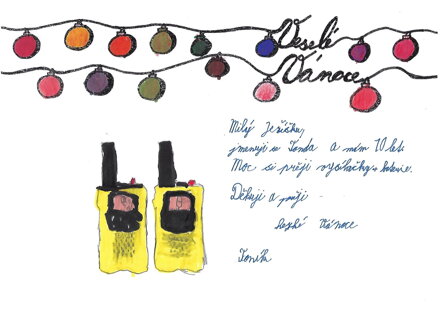 Veselé
Vánoce
Milý Ježíšku,
jmenuji se Tonda a mám 10 let.
Moc si přeji vysílačky + baterie.
Děkuji a přeji
hezké Vánoce
Toník